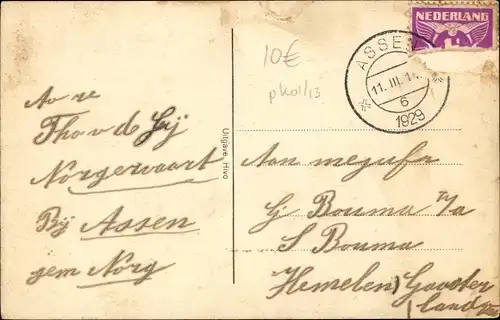 NEDERLAND
ASSEN
11. III. 1
6
1929
10€
Uitgave: Hivo
Norgervaart
Bij Assen
gem Norg
Aan mejufr
Bouma
S Bouma
Hemelen) Gaaster
land